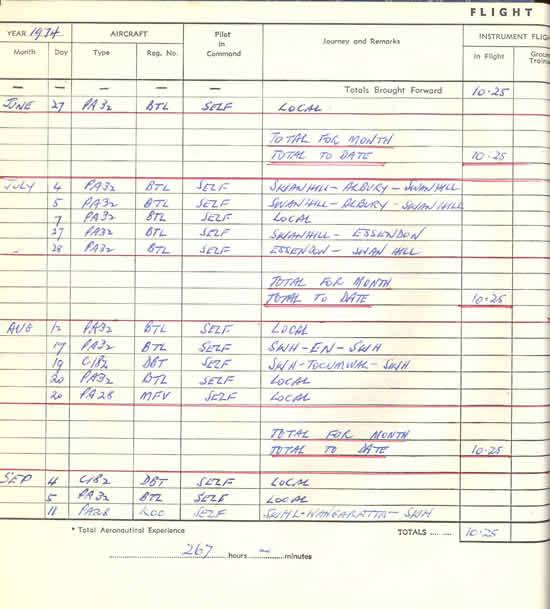 FLIGHT
YEAR 1974 AIRCRAFT Pilot in Command Journey and Remarks INSTRUMENT
Month Day Type Reg. No. In Flight
— — — — — Totals Brought Forward 10.25
JUNE 27 PA32 BTL SELF LOCAL
TOTAL FOR MONTH
TOTAL TO DATE 10.25
JULY 4 PA32 BTL SELF SWANHILL - ALBURY - SWANHILL
5 PA32 BTL SELF SWANHILL - ALBURY - SWANHILL
7 PA32 BTL SELF LOCAL
27 PA32 BTL SELF SWANHILL - ESSENDON
28 PA32 BTL SELF ESSENDON - SWAN HILL
TOTAL FOR MONTH
TOTAL TO DATE 10.25
AUG 12 PA32 BTL SELF LOCAL
17 PA32 BTL SELF SWH-EN-SWH
19 C182 DBT SELF SWH-TOCUMWAL-SWH
20 PA32 BTL SELF LOCAL
20 PA28 MFV SELF LOCAL
TOTAL FOR MONTH
TOTAL TO DATE 10.25
SEP 4 C182 DBT SELF LOCAL
5 PA32 BTL SELF LOCAL
11 PA28 SELF SWHL-WANGARATTA-SWH
* Total Aeronautical Experience TOTALS ........ 10.25
267 hours — minutes